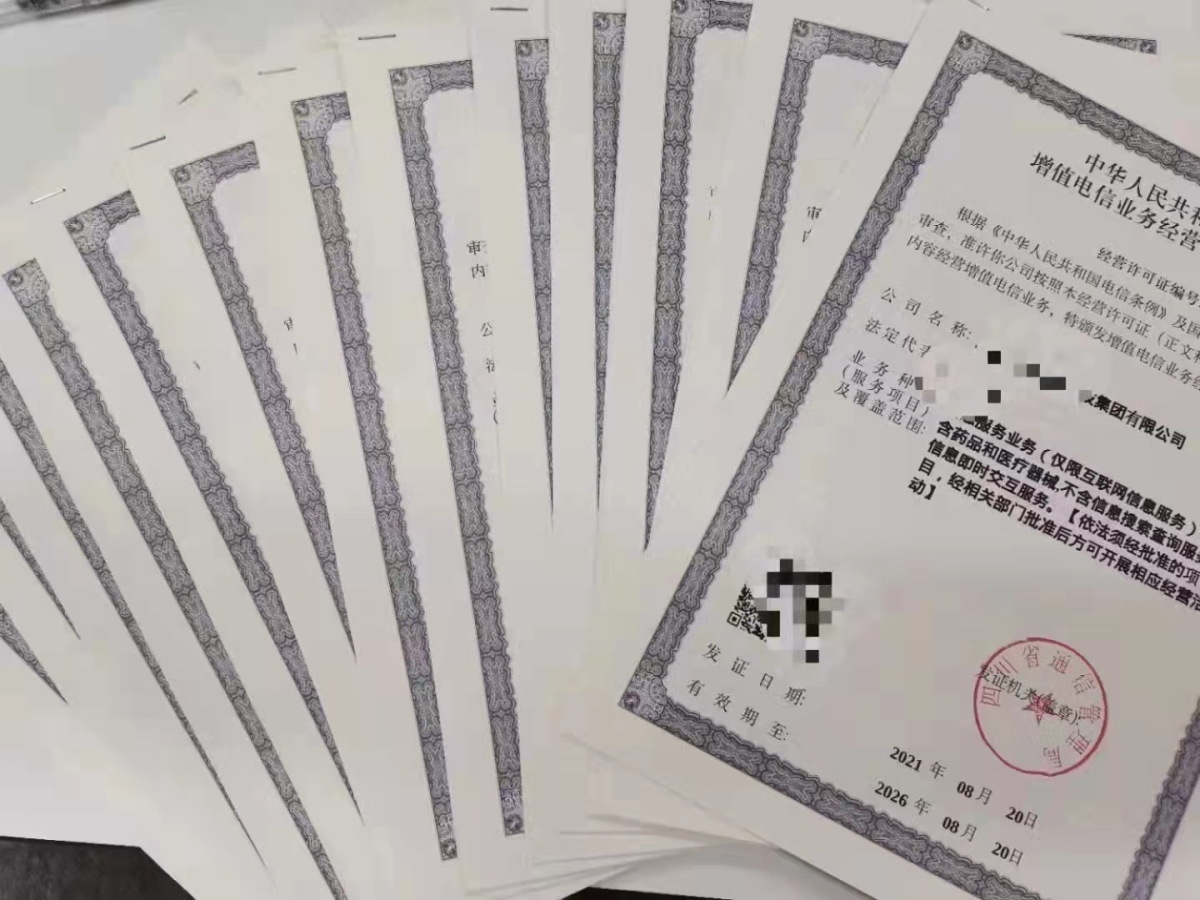 审
审
内
公
法
(
审
内
中华人民共和
增值电信业务经营
经营许可证编号
根据《中华人民共和国电信条例》及国
审查，准许你公司按照本经营许可证（正文
内容经营增值电信业务，特颁发增值电信业务经
公司名称:
法定代表
业务种
(服务项目)
及覆盖范围:
集团有限公司
服务业务（仅限互联网信息服务）
含药品和医疗器械,不含信息搜索查询服
信息即时交互服务。【依法须经批准的项
目，经相关部门批准后方可开展相应经营活
动】
四川省通信管理局
发证机关(盖章):
发证日期:
有效期至:
2021 年 08 月 20日
2026 年 08 月 20日